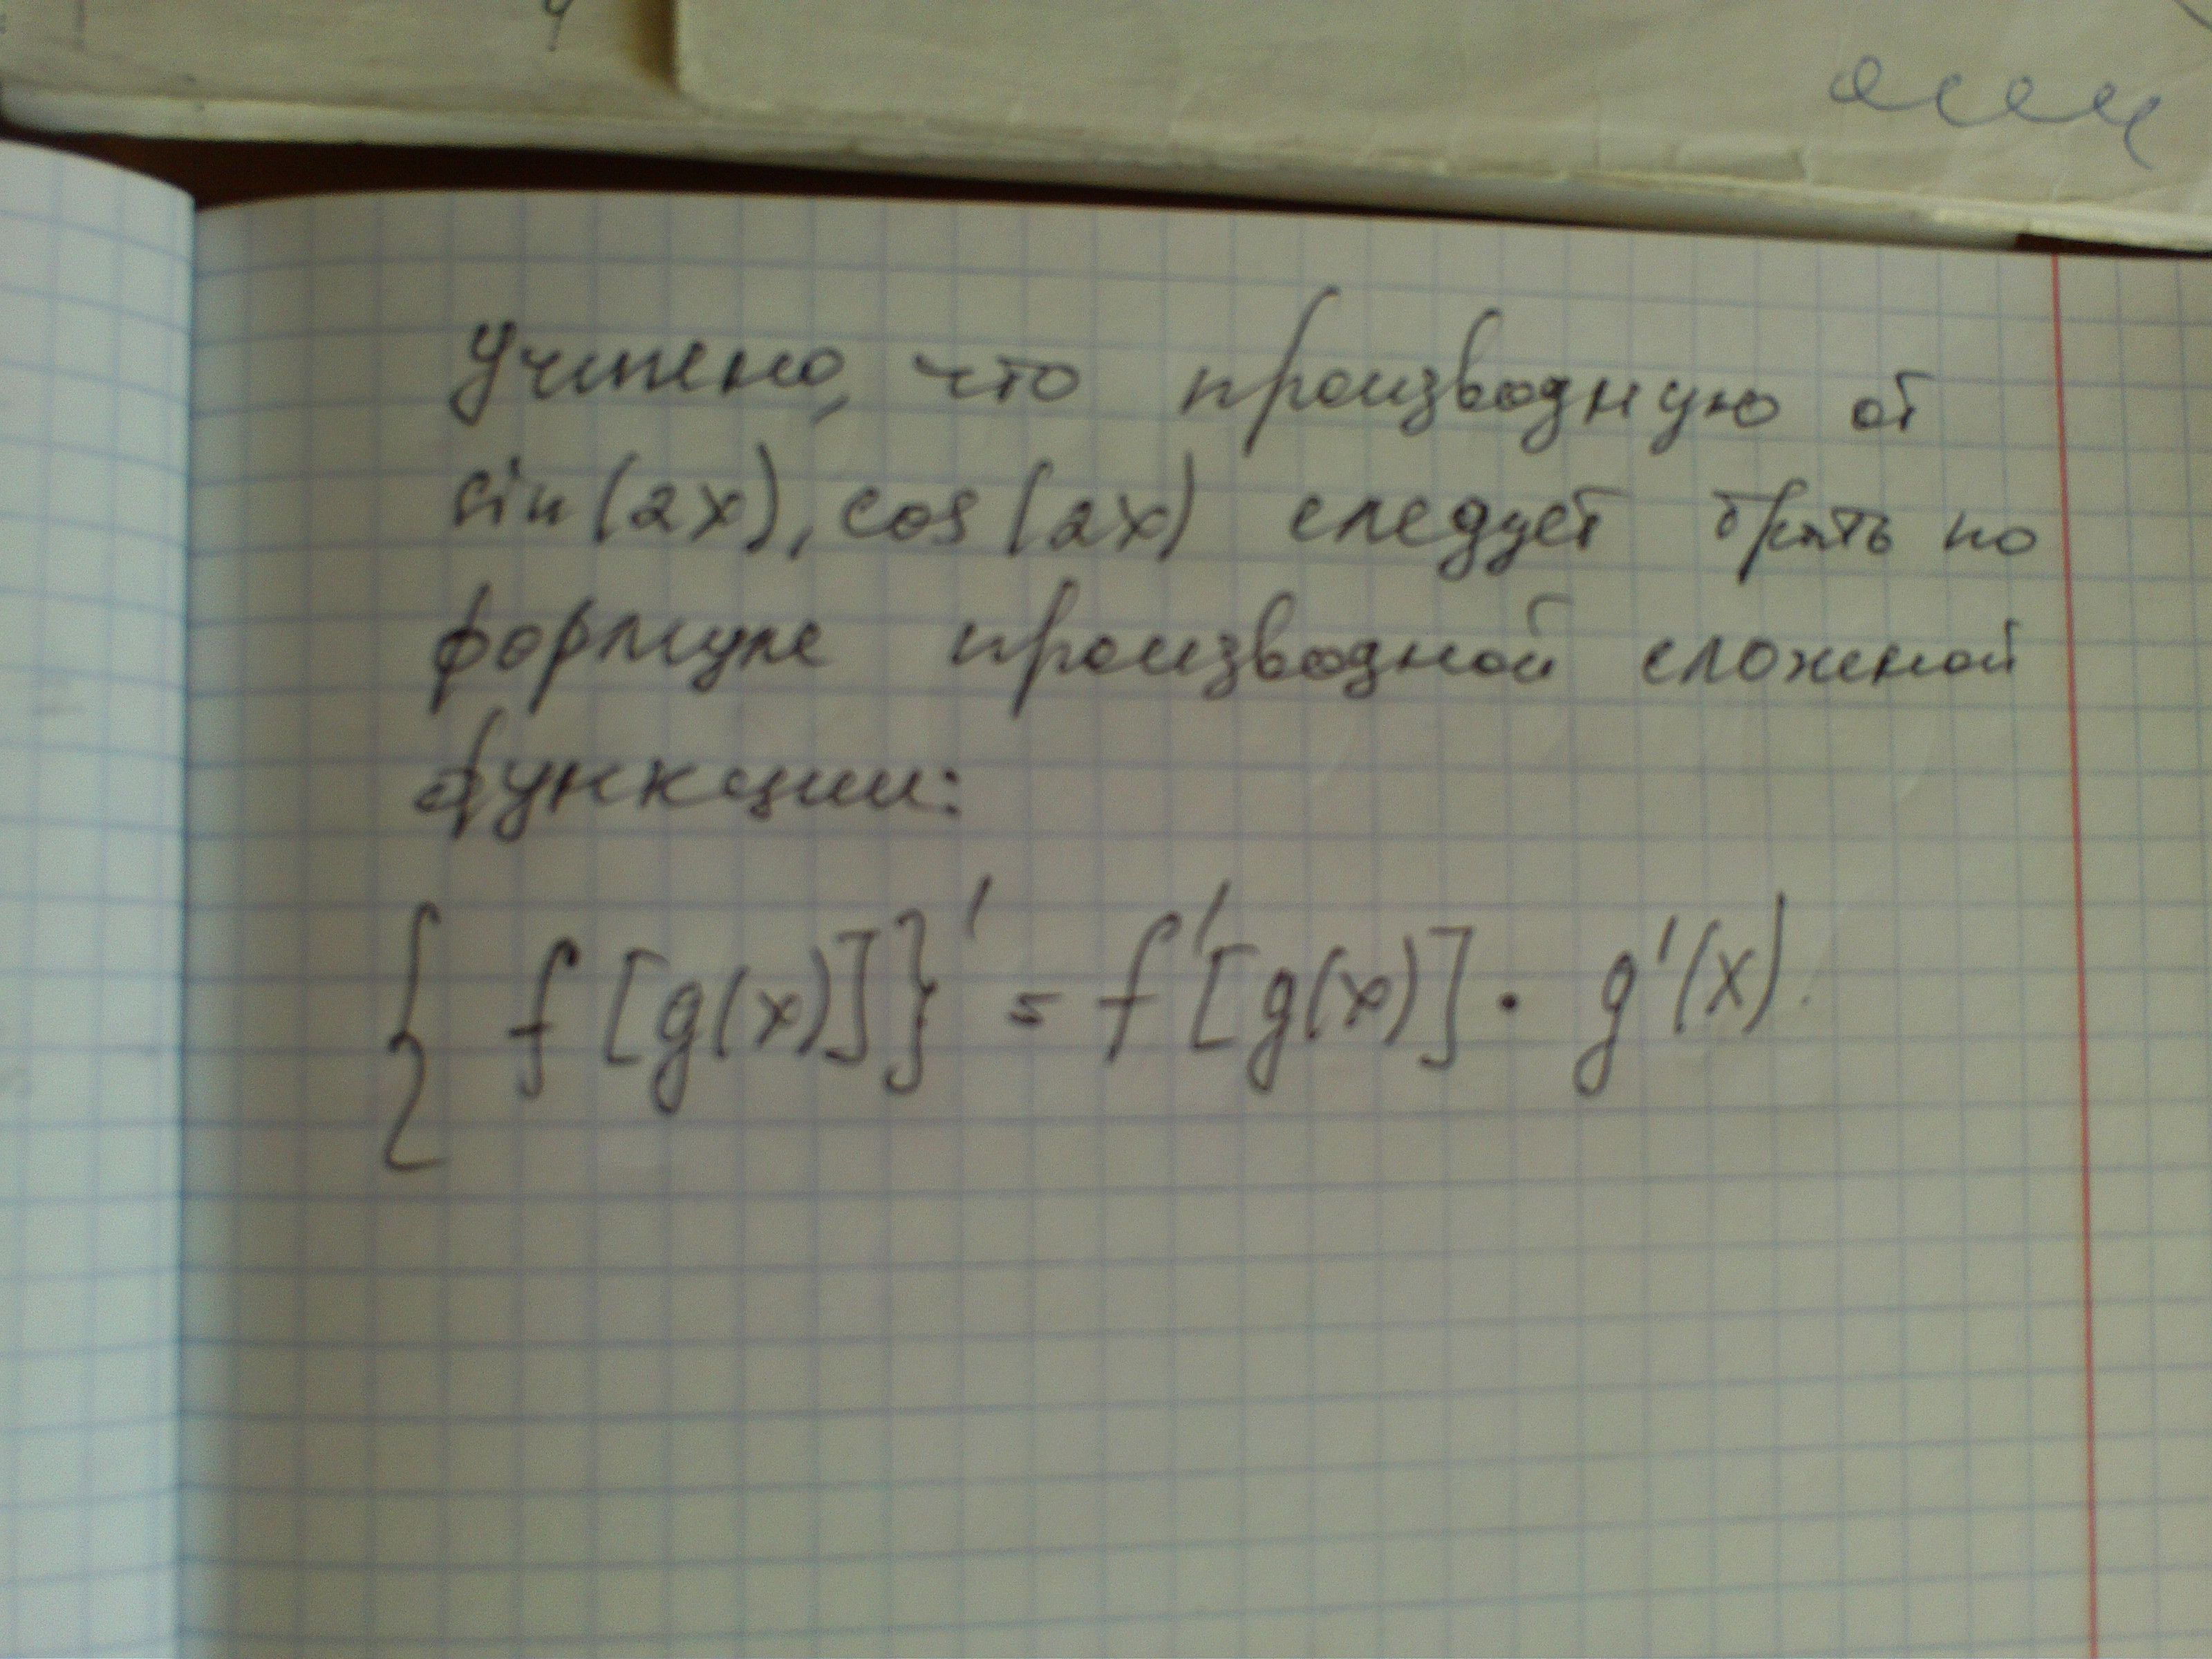 учтено, что производную от
sin(2x), cos(2x) следует брать по
формуле производной сложной
функции:
{f[g(x)]}' = f'[g(x)] · g'(x).